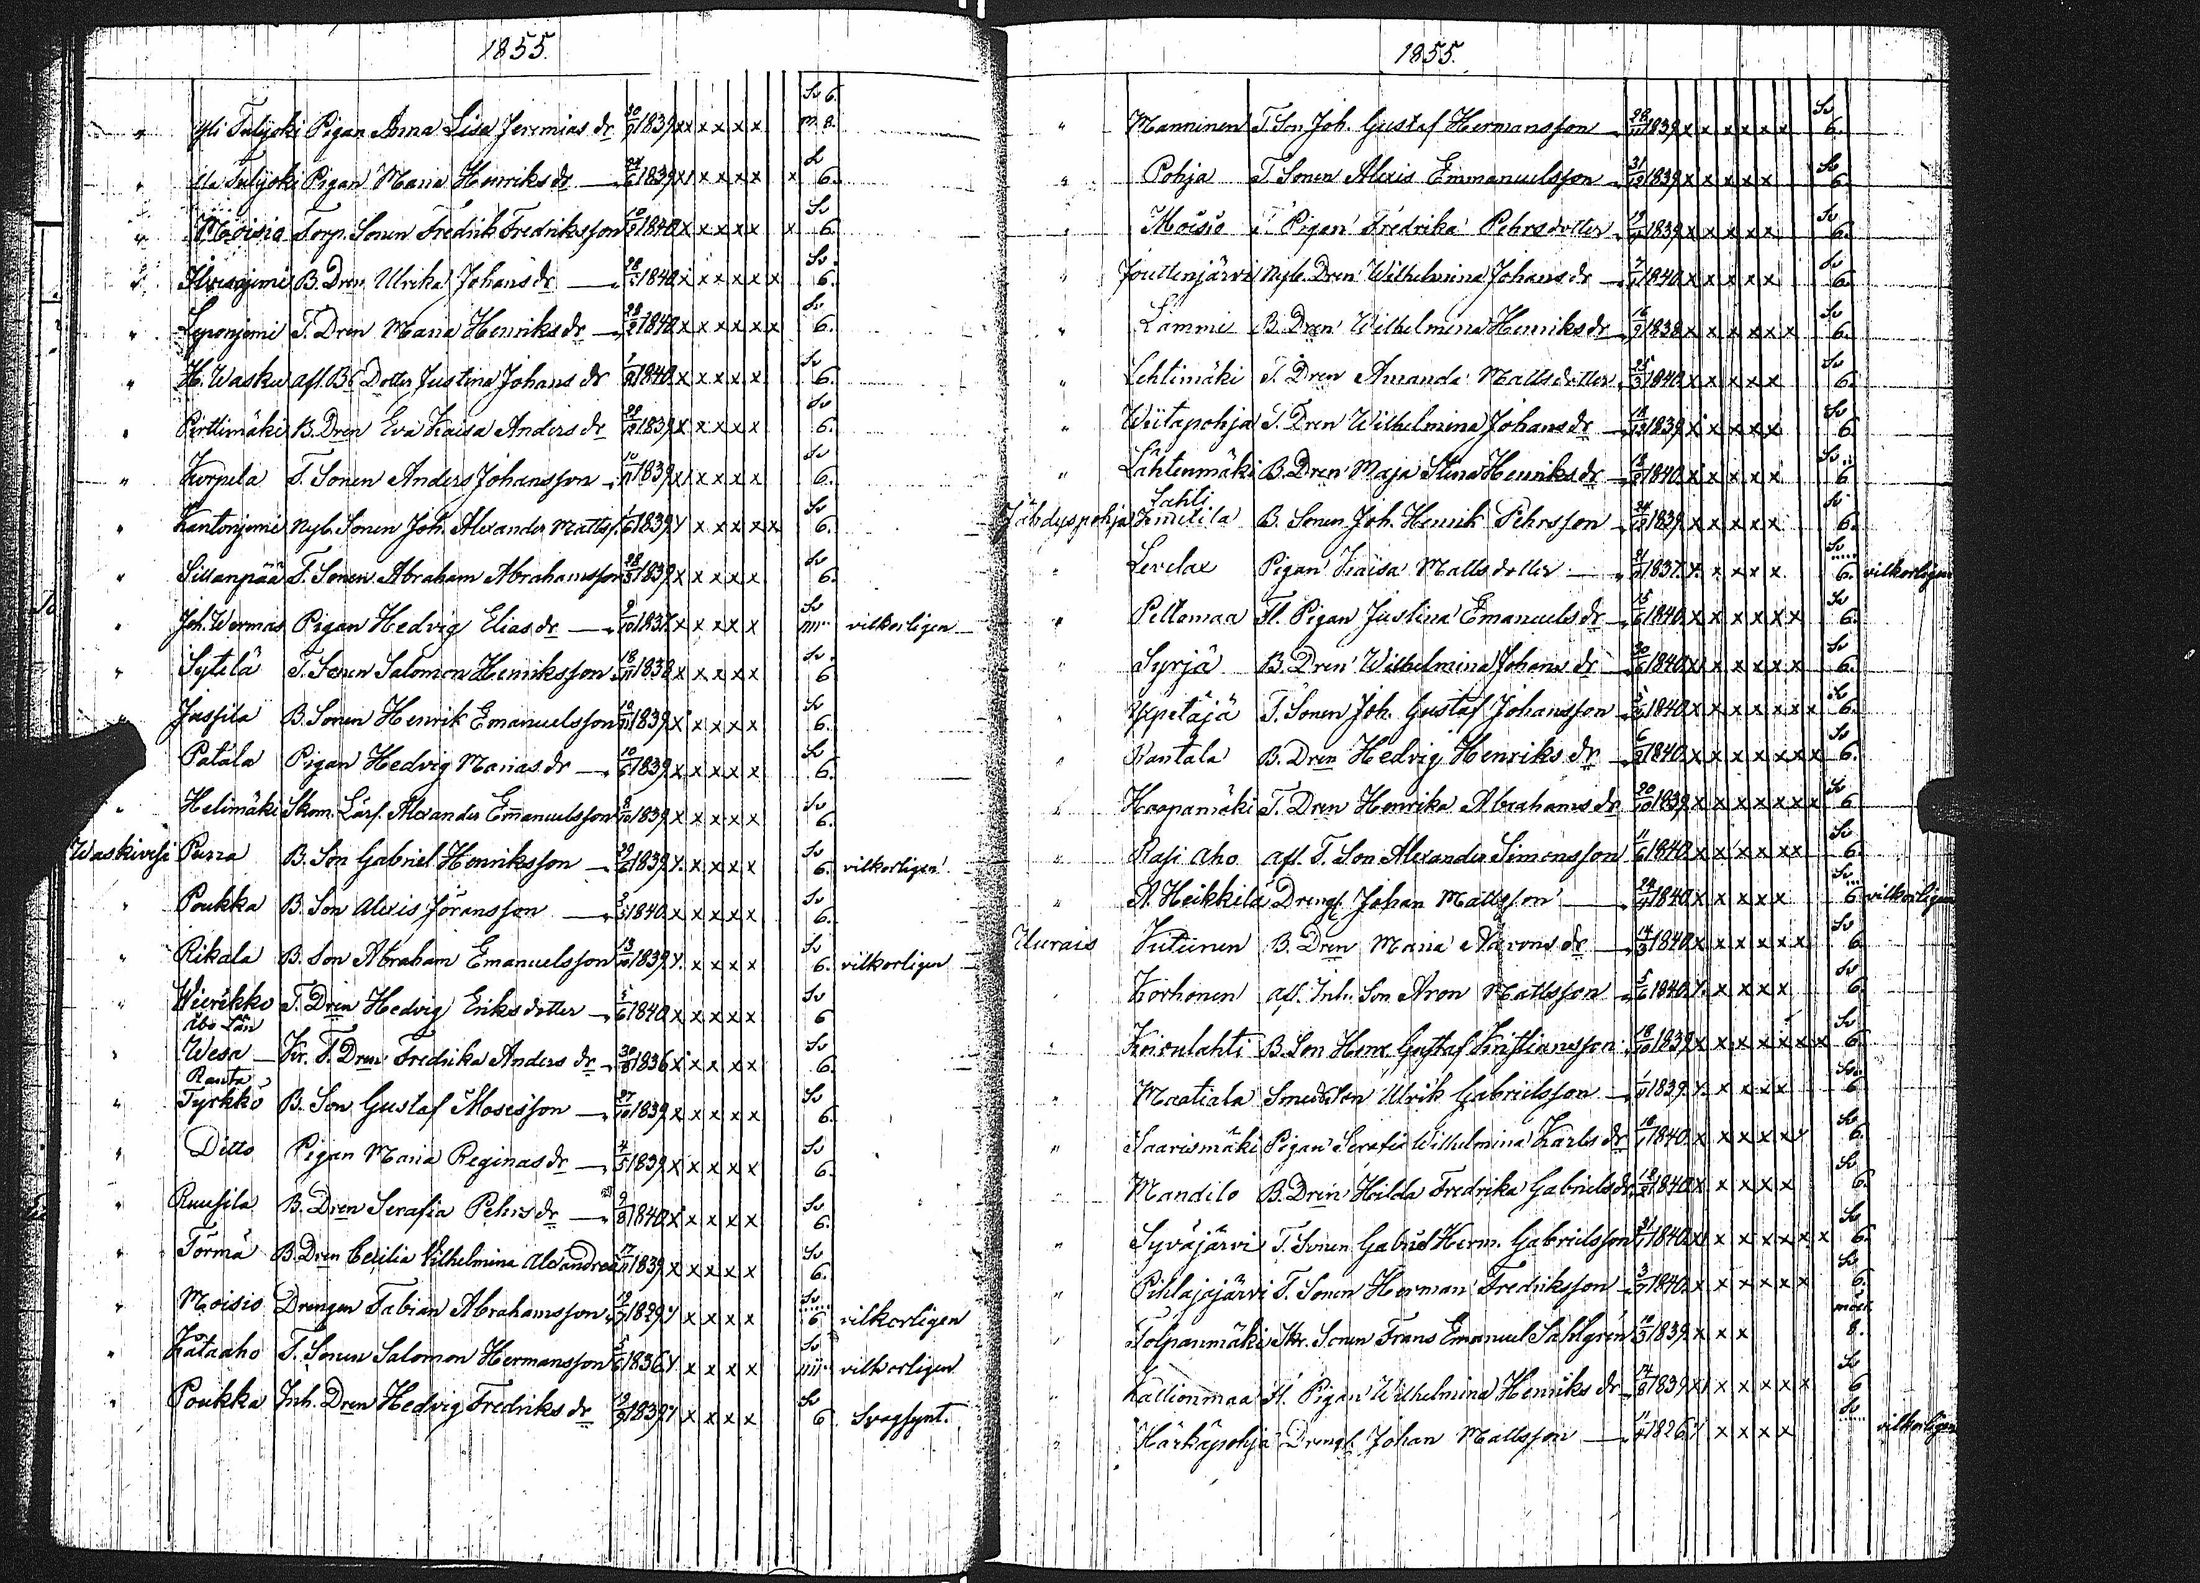 1855.
Sv 6.
" Yli Tulijoki Pigan Anna Lisa Jeremias dr 1839 x x x x x m. 8.
" Ala Tulijoki Pigan Maria Henriks dr — 1839 x x x x x x Sv 6.
" Moisio Torp. Sonen Fredrik Fredriksson 1840 x x x x x x Sv 6.
" B. Dren Ulrika Johans dr — 1840 x x x x x x Sv 6.
" Leponjemi T. Dren Maria Henriks dr — 1840 x x x x x x Sv 6.
" H. Wasku afl. Bs Dotter Justina Johans dr 1840 x x x x x Sv 6.
" Perttimäki B. Dren Eva Kaisa Anders dr 1839 x x x x x Sv 6.
" Korpela T. Sonen Anders Johansson 1839 x x x x x Sv 6.
" Kantonjemi Nyb. Sonen Joh. Alexander Mattss. 1839 x x x x x x Sv 6.
" Sillanpää T. Sonen Abraham Abrahamsson 1839 x x x x x Sv 6.
" Joh. Wermas Pigan Hedvig Elias dr — 1837 x x x x x Sv vilkorligen
" Sytelä T. Sonen Salomon Henriksson 18/11 1838 x x x x x Sv 6
" Jussila B. Sonen Henrik Emanuelsson 1839 x x x x x Sv 6.
Patala Pigan Hedvig Marias dr — 10/6 1839 x x x x x Sv 6.
" Helimäki Skom. Lärl. Alexander Emanuelsson 1839 x x x x x Sv 6.
Waskivesi Purra B. Son Gabriel Henriksson — 1839 x x x x x Sv 6. vilkorligen
" Poukka B. Son Alexis Jöransson — 1840 x x x x x Sv 6.
" Rikala B. Son Abraham Emanuelsson 13/10 1839 x x x x x Sv 6. vilkorligen
" Wierikko T. Dren Hedvig Eriks dotter 1840 x x x x x Sv 6
Åbo Län
" Wesa — Kr. T. Dren Fredrika Anders dr 30/8 1836 x x x x x Sv 6.
Ranta
" Tyrkkö B. Son Gustaf Mosesson — 27/10 1839 x x x x x Sv 6.
" Ditto Pigan Maria Reginas dr — 4/5 1839 x x x x x Sv 6.
" Ruusila B. Dren Serafia Pehrs dr — 9/8 1840 x x x x x Sv 6.
" Törmä B. Dren Cecilia Vilhelmina Alexandersdr 17/11 1839 x x x x x Sv 6.
" Moisio Drengen Fabian Abrahamsson 1829 x x x x x Sv 6 vilkorligen
" Kataaho T. Sonen Salomon Hermansson 1836 x x x x x Sv vilkorligen
" Poukka Inh. Dren Hedvig Fredriks dr 1839 x x x x x Sv 6 Svagsynt.
1855.
" Manninen T. Son Joh. Gustaf Hermansson 1839 x x x x x x Sv 6.
" Pohja T. Sonen Alexis Emmanuelsson 31/12 1839 x x x x x Sv 6
" Moisio T. Pigan Fredrika Pehrsdotter 1839 x x x x x Sv 6.
" Jouttenjärvi Nyb. Dren Wilhelmina Johans dr 1840 x x x x x Sv 6.
" Lammi B. Dren Wilhelmina Henriks dr 16/9 1838 x x x x x x Sv 6.
" Lehtimäki T. Dren Amanda Mattsdotter 25/3 1840 x x x x x Sv 6.
" Wiitapohja T. Dren Wilhelmina Johans dr 1839 x x x x x Sv 6.
" Lähtenmäki B. Dren Maja Stina Henriks dr 1840 x x x x x Sv 6
Lahti
Jähdyspohja B. Sonen Joh. Henrik Pehrsson 24/12 1839 x x x x x Sv 6.
" Levelax Pigan Kaisa Mattsdotter — 1837 x x x x x Sv 6. vilkorligen
" Peltomaa Tl. Pigan Justina Emanuels dr 15/6 1840 x x x x x x Sv 6.
" Syrjä B. Dren Wilhelmina Johans dr 30/6 1840 x x x x x x Sv 6.
" T. Sonen Joh. Gustaf Johansson 1840 x x x x x x x Sv 6.
" Rantala B. Dren Hedvig Henriks dr 1840 x x x x x x x Sv 6.
" Haapamäki T. Dren Henrika Abrahams dr 20/10 1839 x x x x x x x Sv 6
" Rasi aho afl. T. Son Alexander Simonsson 11/6 1840 x x x x x x Sv 6.
" A. Heikkilä Drengl. Johan Mattsson — 1840 x x x x x Sv 6 vilkorligen
Uurais Kutunen B. Dren Maria Aarons dr — 14/3 1840 x x x x x x Sv 6
Korhonen afl. Inh. Son Aron Mattsson 5/6 1840 x x x x x Sv 6.
" Koivulahti B. Son Henr. Gustaf Kristiansson 18/10 1839 x x x x x x x Sv 6.
" Maatiala Smeds Son Ulrik Gabrielsson 1839 x x x x x Sv 6
" Saarismäki Pigan Serafia Wilhelmina Karls dr 1840 x x x x x x Sv 6.
" Mandilo B. Dren Hilda Fredrika Gabriels dr 1840 x x x x x Sv 6.
" Syväjärvi T. Sonen Gabriel Herm. Gabrielsson 1840 x x x x x x x Sv 6.
" Pihlajajärvi T. Sonen Herman Fredriksson 1840 x x x x x x Sv 6.
Tolpanmäki Skr. Sonen Frans Emanuel Sahlgren 1839 x x x 8.
" Kallionmaa Tl. Pigan Wilhelmina Henriks dr 14/8 1839 x x x x x x Sv 6
" Härkäpohja Drengl. Johan Mattsson — 1826 x x x x x Sv vilkorligen